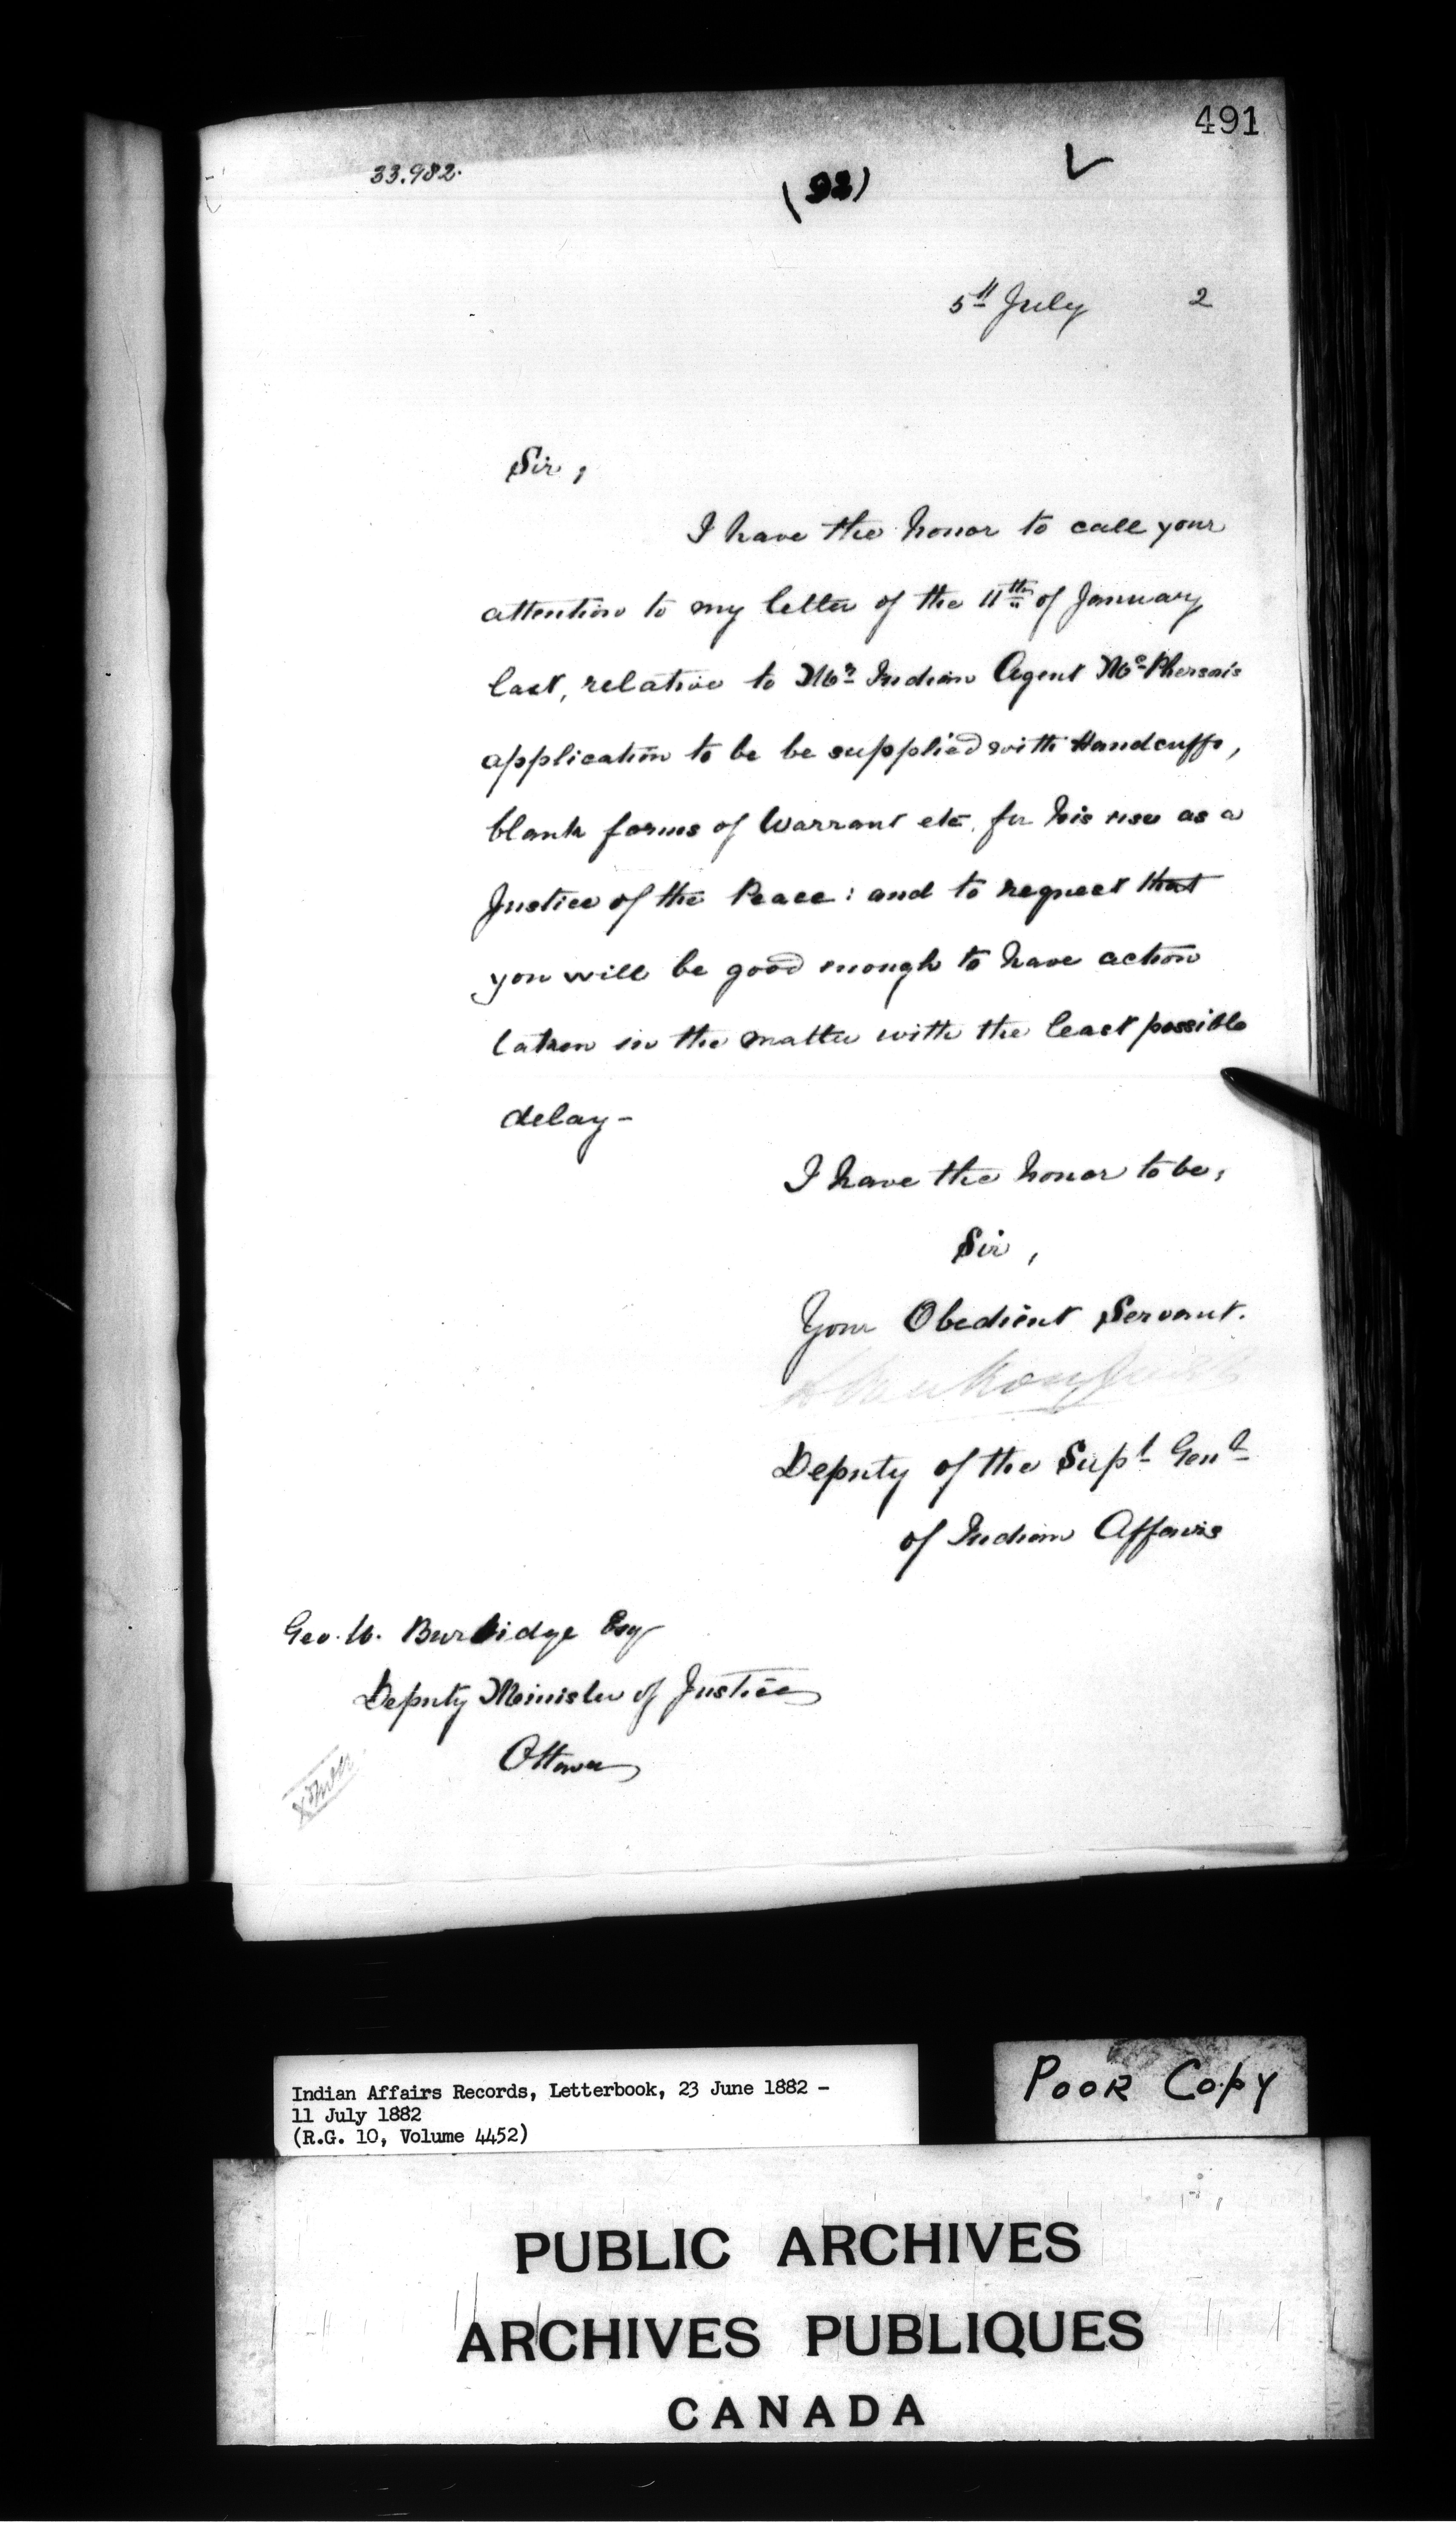 491
33.982.
5th July 2
Sir,
I have the honor to call your
attention to my letter of the 11th of January
last, relative to Mr Indian Agent McPherson's
application to be be supplied with Handcuffs,
blank forms of Warrant etc. for his use as a
Justice of the Peace: and to request that
you will be good enough to have action
taken in the matter with the least possible
delay-
I have the honor to be,
Sir,
Your Obedient Servant.
Deputy of the Supt Genl
of Indian Affairs
Geo. W. Burbidge Esq
Deputy Minister of Justice
Ottawa
Indian Affairs Records, Letterbook, 23 June 1882 -
11 July 1882
(R.G. 10, Volume 4452)
POOR COPY
PUBLIC ARCHIVES
ARCHIVES PUBLIQUES
CANADA